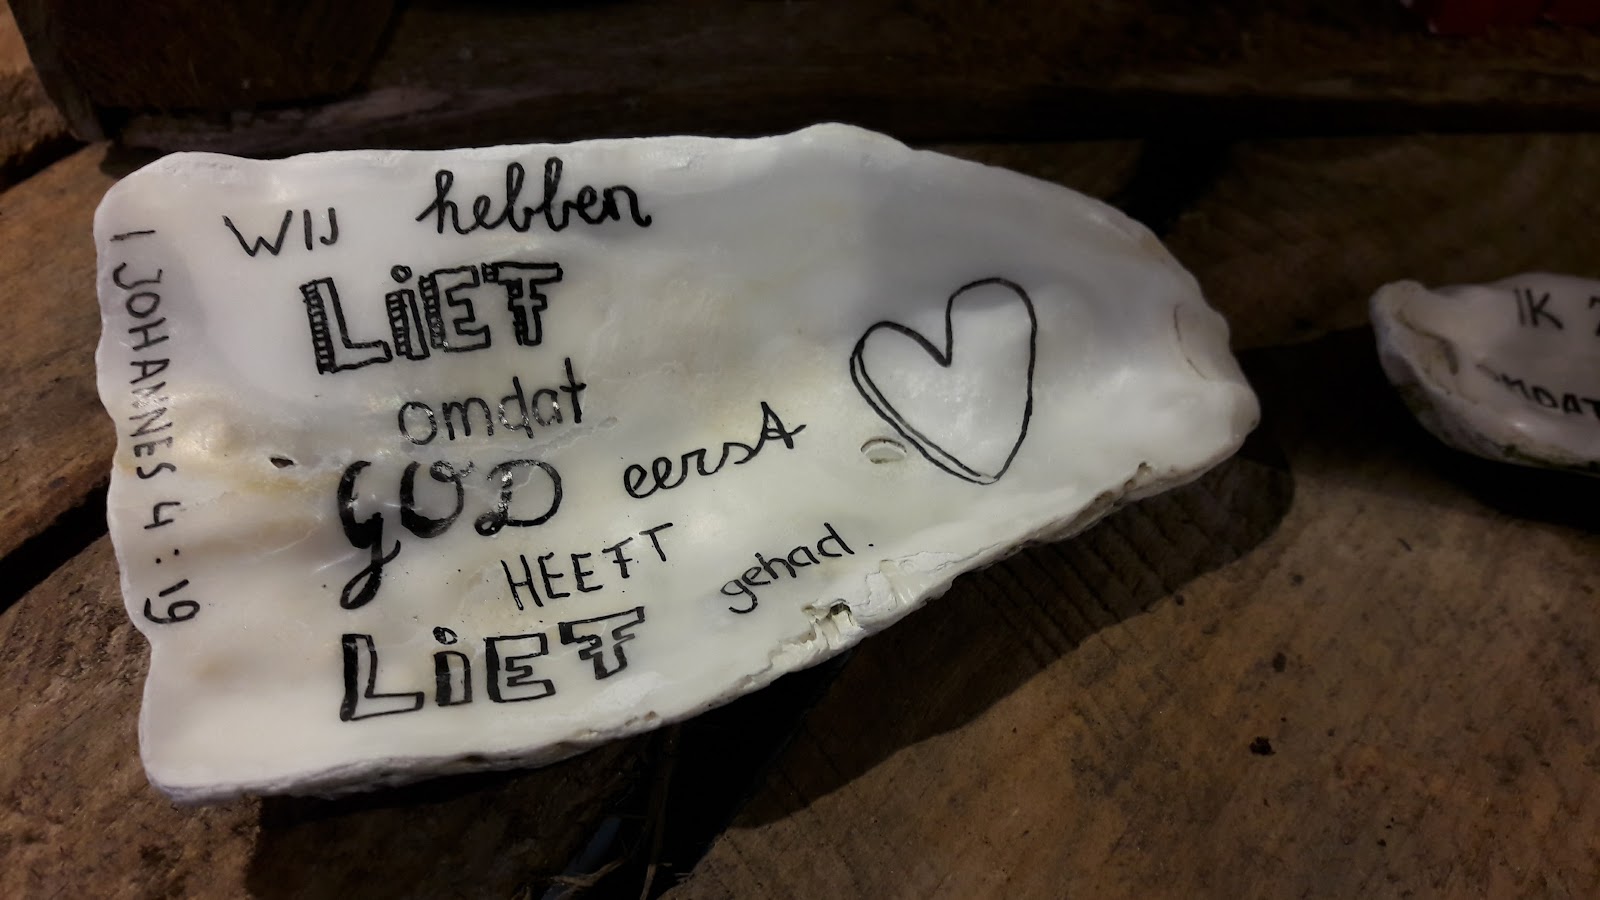 WIJ hebben
LiET
omdat
GOD eerst
HEEFT gehad.
LiET
1 JOHANNES 4:19
IK
OMDAT